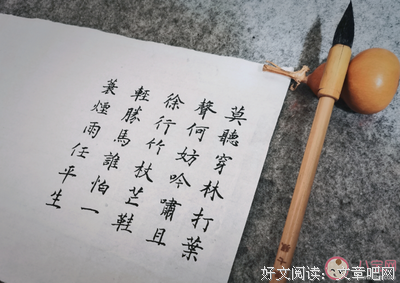 莫聽穿林打葉
聲何妨吟嘯且
徐行竹杖芒鞋
輕勝馬誰怕一
蓑煙雨任平生
好文阅读:文章吧网